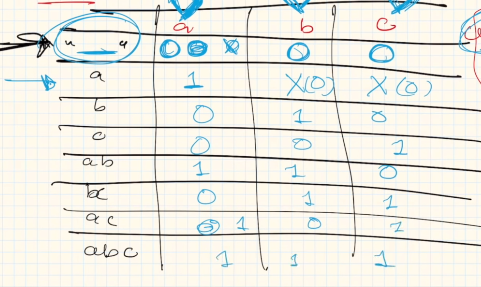 a b c
" " 0 0 0
a 1 X(0) X(0)
b 0 1 0
c 0 0 1
ab 1 1 0
bc 0 1 1
ac 1 0 1
abc 1 1 1